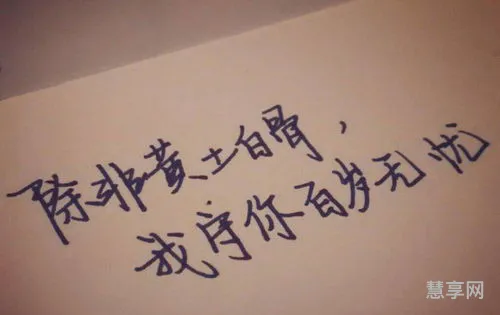 除非黄土白骨，
我守你百岁无忧
慧享网